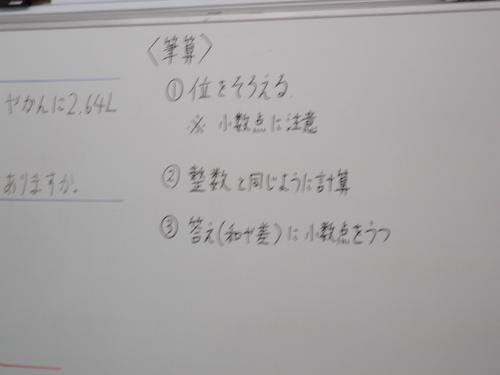 やかんに2.64L
ありますか。
〈筆算〉
①位をそろえる
※ 小数点に注意
②整数と同じように計算
③答え(和や差)に小数点をうつ